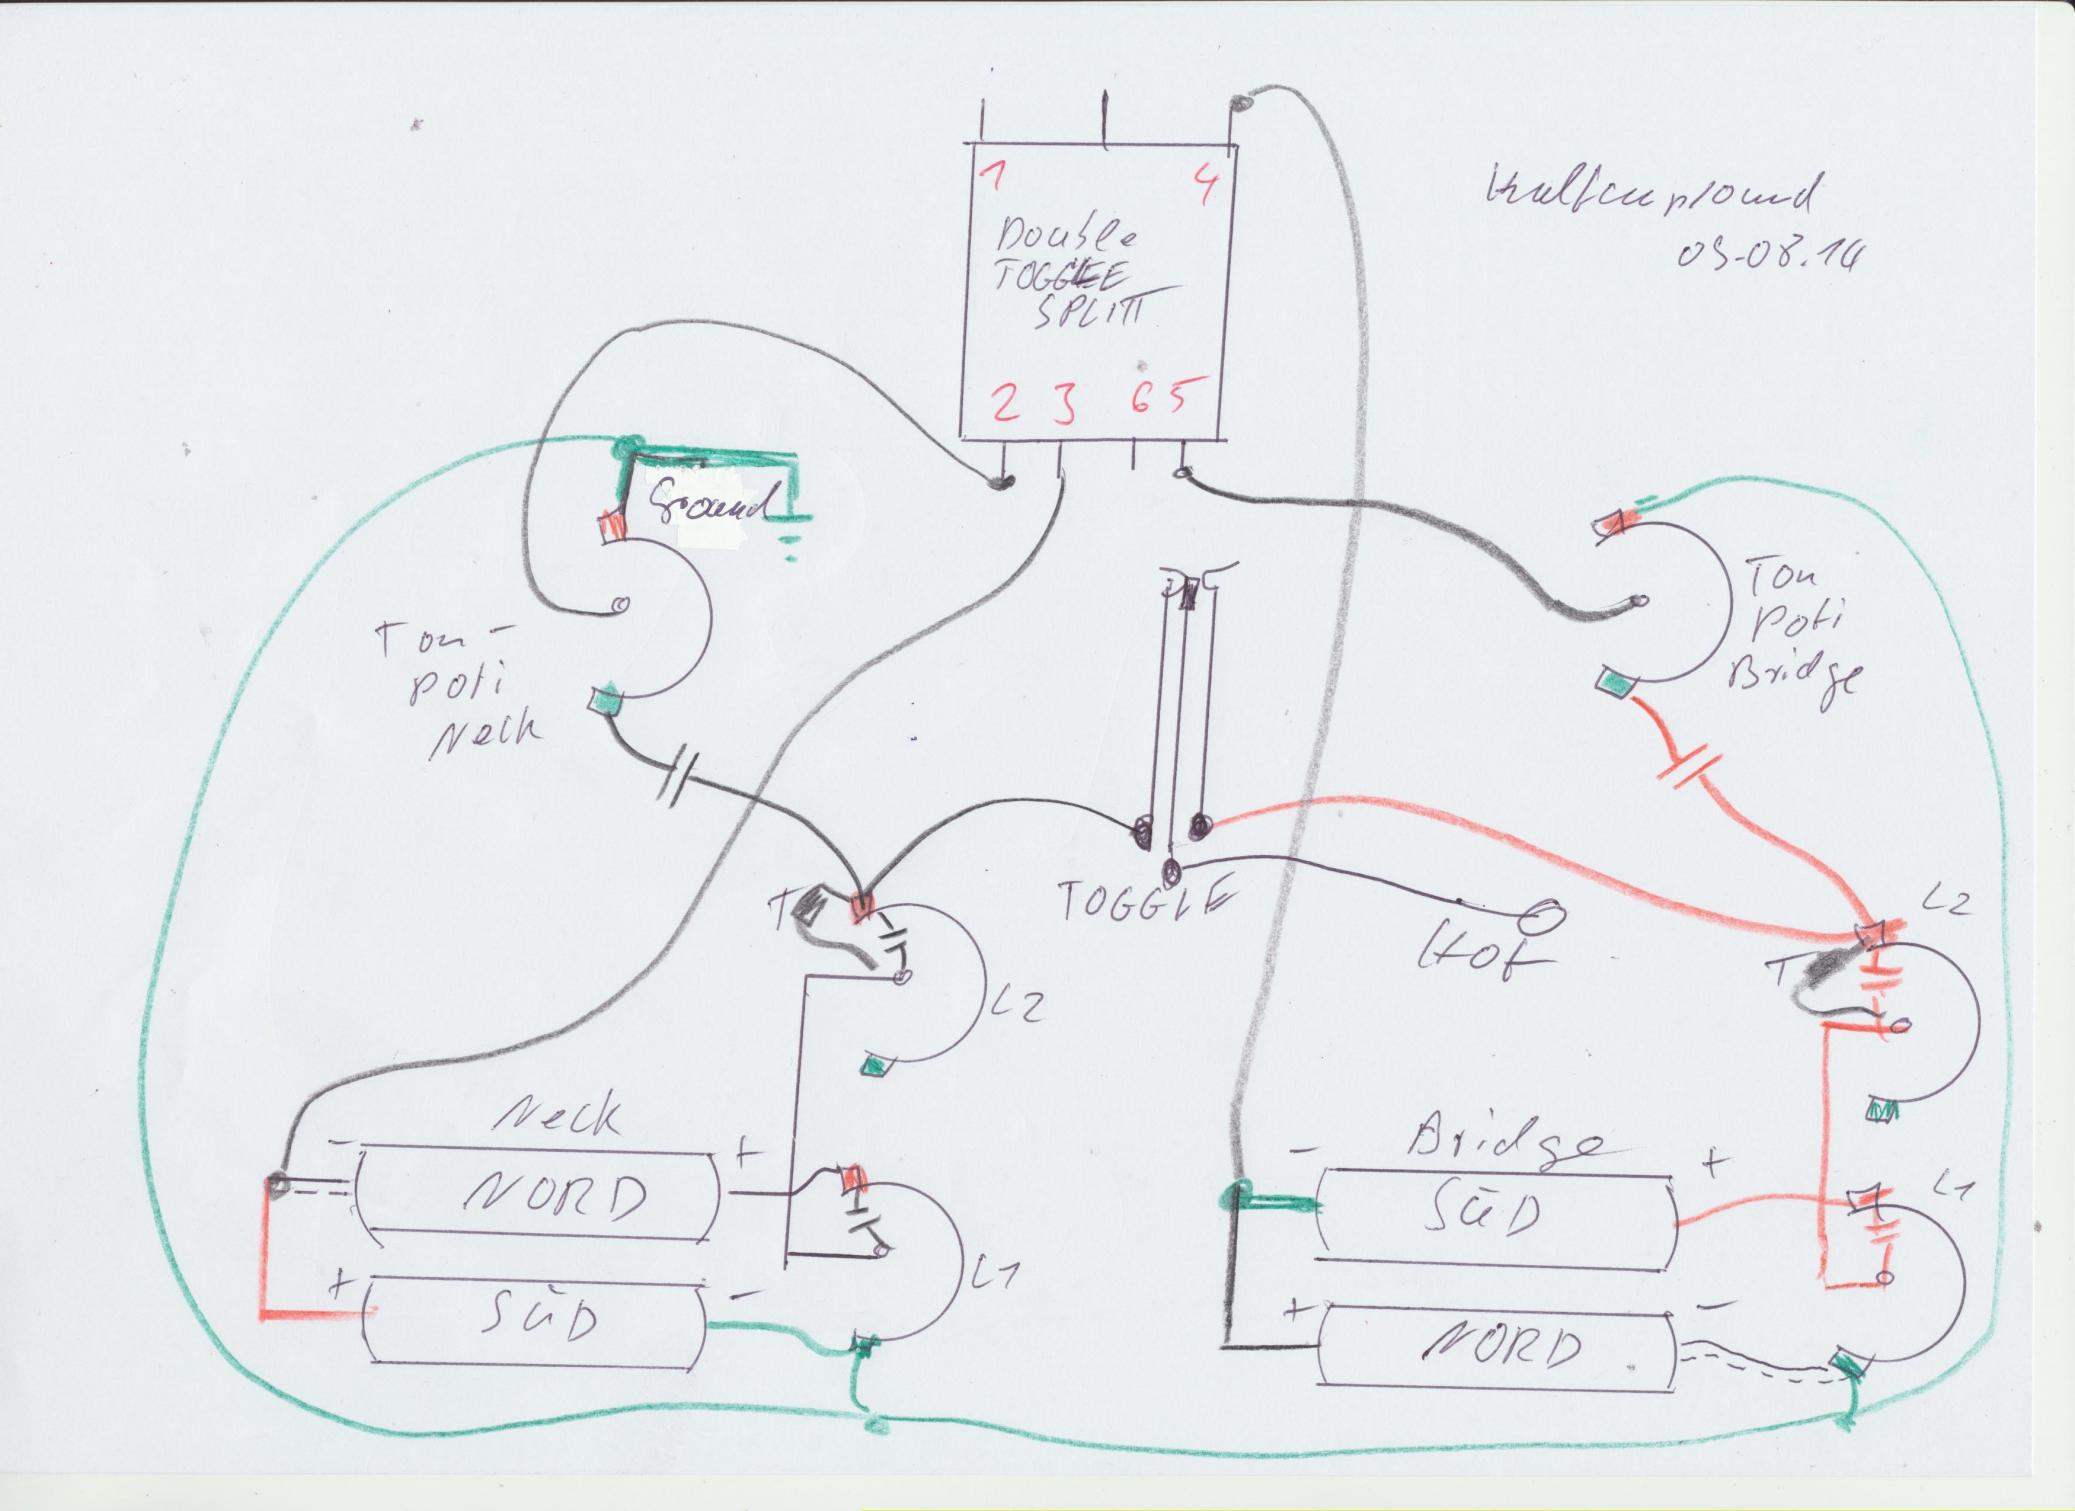 1 4
Double
TOGGLE
SPLITT
2 3 6 5
03-08.14
Ground
Ton-
poti
Neck
Ton
Poti
Bridge
TOGGLE
Hot
T
L2
L2
T
Neck
- NORD +
+ SÜD -
L1
Bridge
- SÜD +
+ NORD -
L1